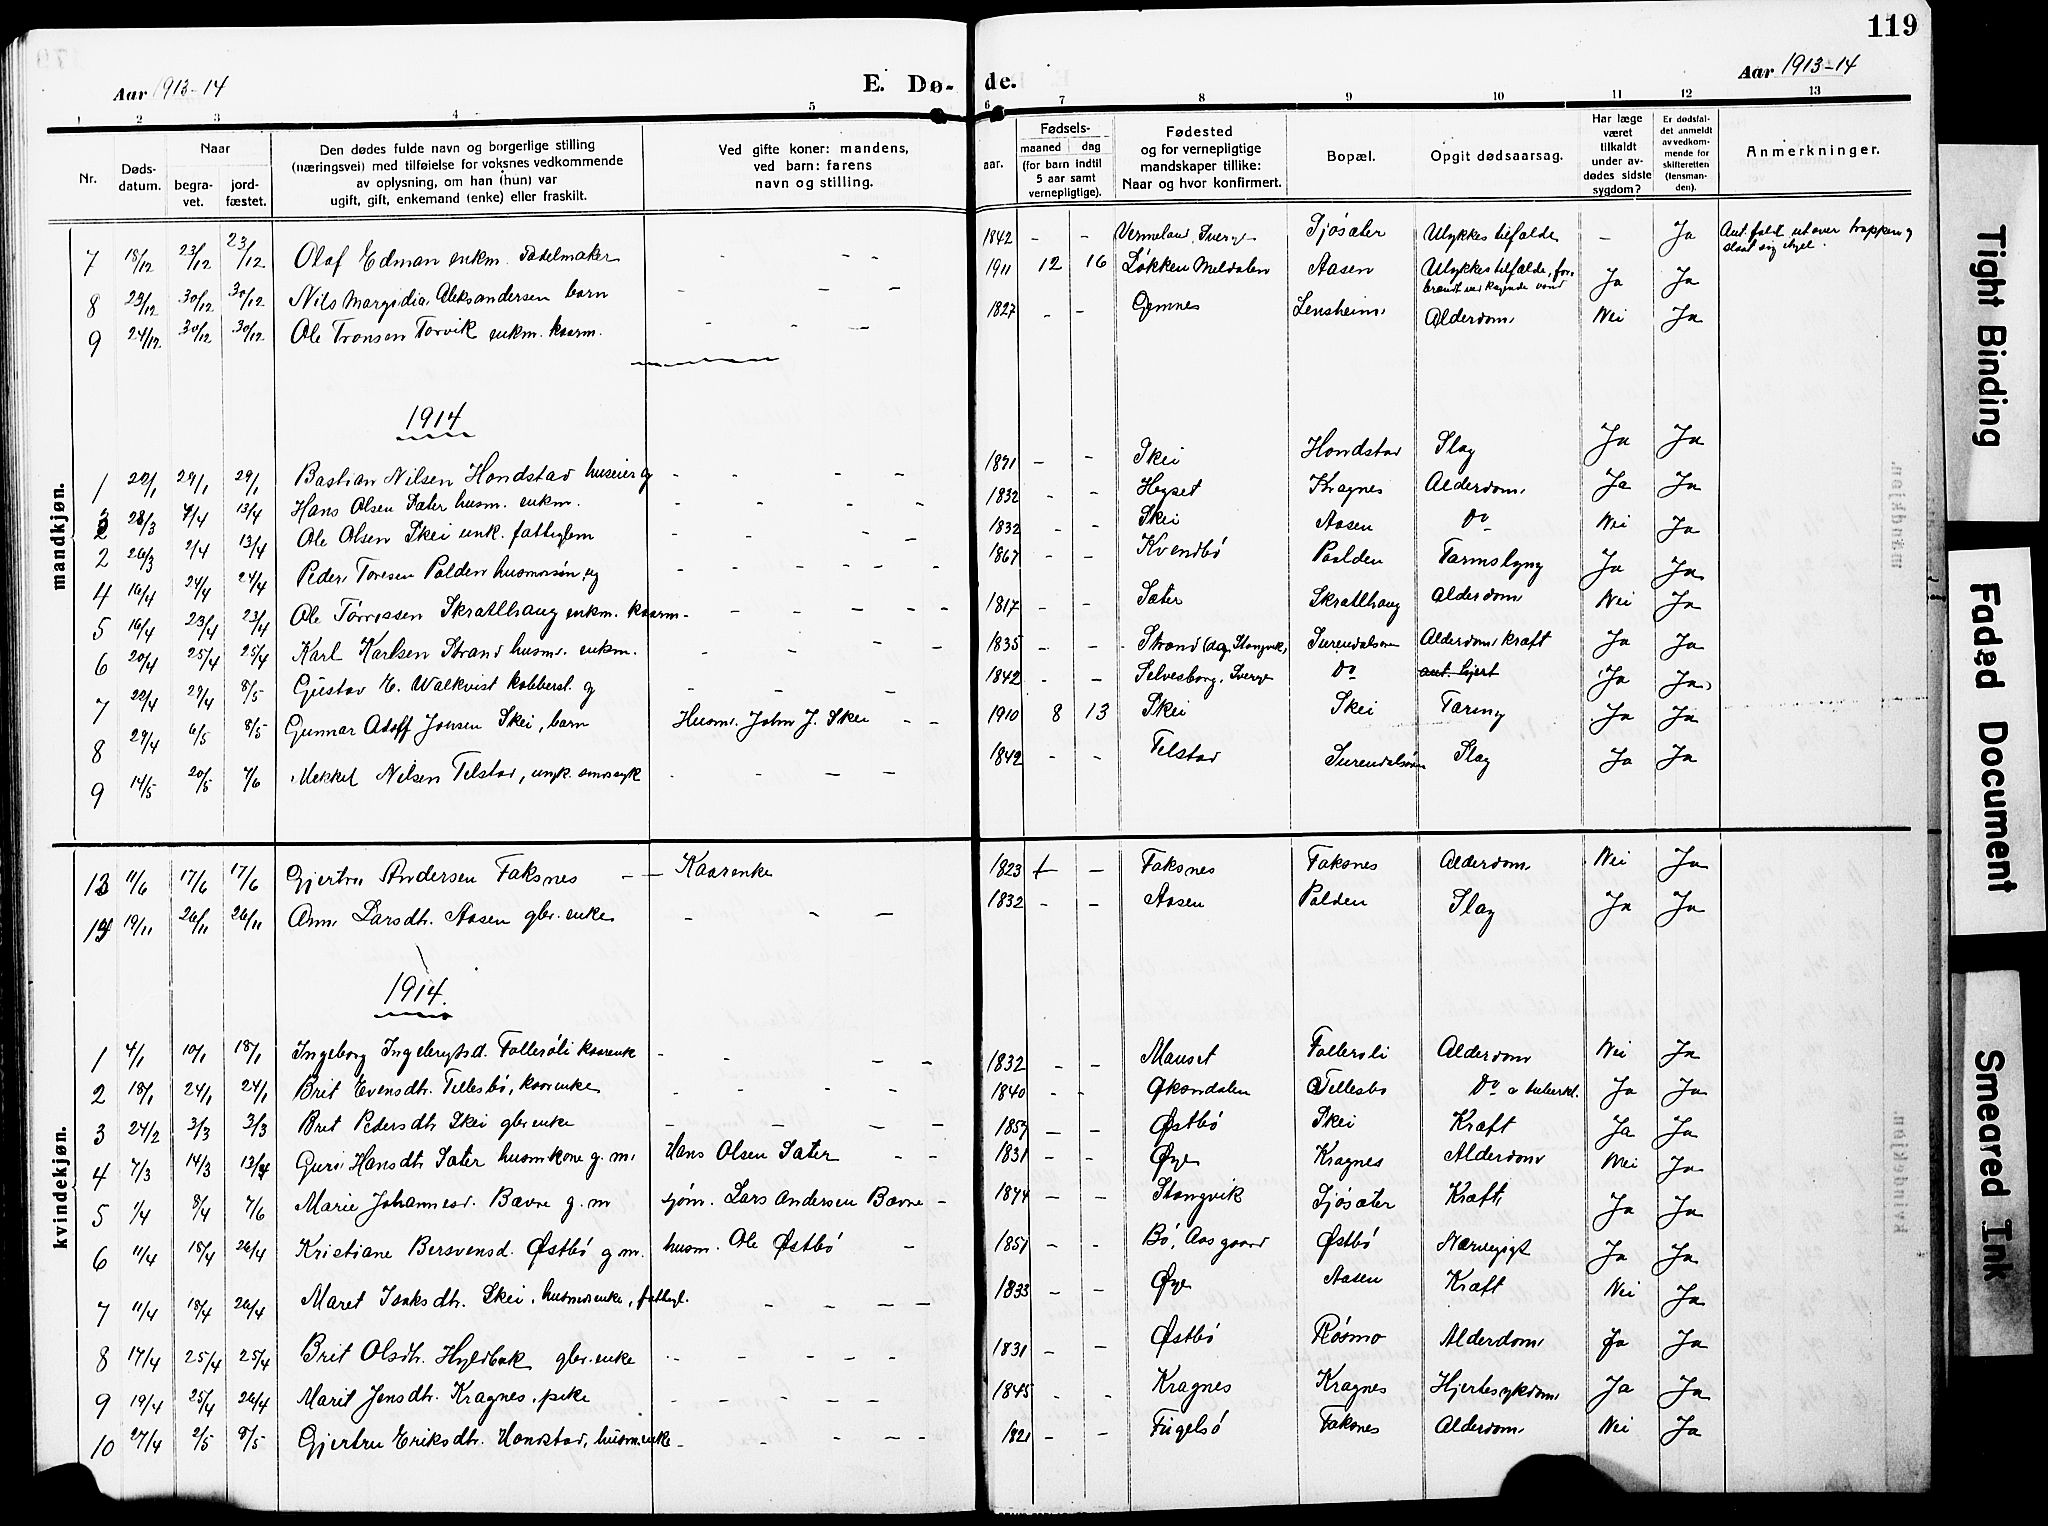 119
Aar 1913-14
E. Dø-
de.
Aar 1913-14
1 2 3 4 5 6 7 8 9 10 11 12 13
Nr.
Døds-
datum.
Naar
begra-
vet.
jord-
fæstet.
Den dødes fulde navn og borgerlige stilling
(næringsvei) med tilføielse for voksnes vedkommende
av oplysning, om han (hun) var
ugift, gift, enkemand (enke) eller fraskilt.
Ved gifte koner: mandens,
ved barn: farens
navn og stilling.
Fødsels-
aar.
maaned dag
(for barn indtil
5 aar samt
vernepligtige).
Fødested
og for vernepligtige
mandskaper tillike:
Naar og hvor konfirmert.
Bopæl.
Opgit dødsaarsag.
Har læge
været
tilkaldt
under av-
dødes sidste
sygdom?
Er dødsfal-
det anmeldt
av vedkom-
mende for
skifteretten
(lensman-
den).
Anmerkninger.
mandkjøn.
7 18/12 23/12 23/12 Olaf Edman enkm. Sadelmaker - - - 1842 - - Vermeland, Sverge Sjøsæter Ulykkestilfælde - Ja Ant. fald utover trappen og
slaat sig ihjel.
8 23/12 30/12 30/12 Nils Margido Aleksandersen barn - - - 1911 12 16 Løkken Meldalen Aasen Ulykkestilfælde, for-
brændt ved kogende vand Ja Ja
9 24/12 30/12 30/12 Ole Tronsen Torvik enkm. kaarm. - - - 1827 - - Gjemnes Lensheim Alderdom Nei Ja
1914
1 20/1 29/1 29/1 Bastian Nilsen Hondstad huseier g - - - 1871 - - Skei Hondstad Slag Ja Ja
3 28/3 7/4 13/4 Hans Olsen Sæter husm. enkm. - - - 1832 - - Hegset Kragnes Alderdom Ja Ja
2 26/3 2/4 13/4 Ole Olsen Skei enk. fattiglem - - - 1832 - - Skei Aasen Do Nei Ja
4 16/4 24/4 24/4 Peder Toresen Polden husmorsøn, ug - - - 1867 - - Kvendbø Paalden Tarmslyng Ja Ja
5 16/4 23/4 23/4 Ole Tørresen Skrallhaug enkm. kaarm - - - 1817 - - Sæter Skrallhaug Alderdom Nei Ja
6 20/4 25/4 25/4 Karl Karlsen Strand husm. enkm. - - - 1835 - - Strand (ag. Stangvik, Surendalsøren Alderdom, kræft Ja Ja
7 22/4 29/4 8/5 Gustav E. Walkvist kobbersl. g - - - 1842 - - Selvesborg, Sverge Do ant. hjert Ja Ja
8 29/4 6/5 8/5 Gunnar Adolf Jonsen Skei, barn Husm. John J. Skei - - 1910 8 13 Skei Skei Tæring Ja Ja
9 14/5 20/5 7/6 Mekkel Nilsen Telstad, ungk. sindssyk - - - 1842 - - Telstad Surendalsøren Slag Ja Ja
kvindekjøn.
13 11/6 17/6 17/6 Gjertru Andersen Faksnes - Kaarenke 1823 - Faksnes Faksnes Alderdom Nei Ja
14 19/11 26/11 26/11 Ane Larsdtr. Aasen gbr. enke - - - 1832 - - Aasen Polden Slag Ja Ja
1914.
1 4/1 10/1 18/1 Ingeborg Ingebrigtsd. Follerøli kaarenk - - - 1832 - - Mauset Follerøli Alderdom Nei Ja
2 18/1 24/1 24/1 Brit Evensdtr. Tellesbø, kaarenke - - - 1840 - - Øksendalen Tellesbø Do o tuberkl. Ja Ja
3 24/2 3/3 3/3 Brit Pedersdtr Skei gbr enke - - - 1857 - - Østbø Skei Kræft Ja Ja
4 7/3 14/3 13/4 Guri Hansdtr Sæter husmkone g. m. Hans Olsen Sæter - - 1831 - - Øye Kragnes Alderdom Nei Ja
5 1/4 8/4 7/6 Marie Johannesd. Bævre g. m gjøm. Lars Andersen Bævre - 1874 - - Stangvik Sjøsæter Kræft Ja Ja
6 11/4 18/4 26/4 Kristiane Bersvensd. Østbø g m. husm. Ole Østbø - 1851 - - Bø, Aasgaard Østbø Nærvegigt Ja Ja
7 11/4 18/4 26/4 Maret Isaksdtr. Skei, husmorenke, fattigl. - - - 1833 - - Øye Aasen Kræft Nei Ja
8 17/4 25/4 25/4 Brit Olsdtr. Hyldbak gbr. enke - - - 1831 - - Østbø Røsmo Alderdom Ja Ja
9 19/4 25/4 26/4 Marit Jensdtr. Kragnes, pike - - - 1845 - - Kragnes Kragnes Hjertesykdom Ja Ja
10 27/4 2/5 8/5 Gjertru Eriksdtr. Hondstad, husm.enke - - - 1821 - - Fugelsø Faksnes Alderdom Nei Ja
Tight Binding
Faded Document
Smeared Ink